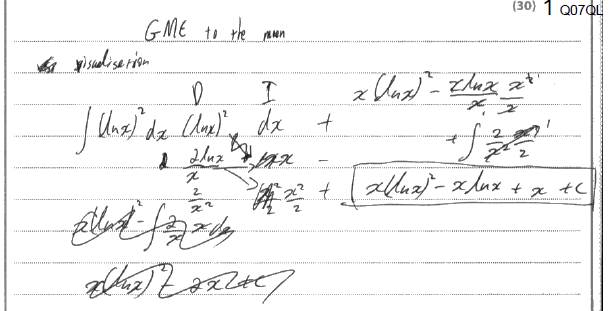 (30) 1 Q07QL
GME to the moon
visualisation
D I
∫(lnx)² dx (lnx)² dx +
2lnx/x x −
2/x² x²/2 +
x(lnx)² − 2lnx/x x²/2
+ ∫ 2/x² x²/2
x(lnx)² − xlnx + x + c
x(lnx)² − ∫ 2/x x dx
x(lnx)² − 2x + c